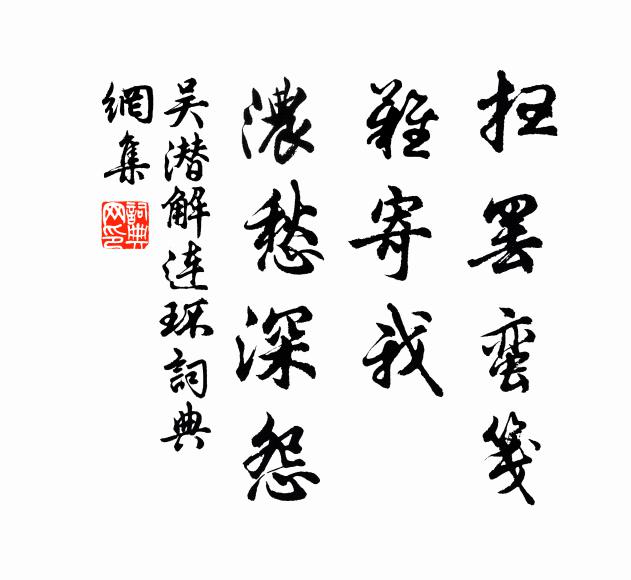 扫罢蛮笺
难寄我
濃愁深怨
吴潜解连环詞典
網集
詞典
网印